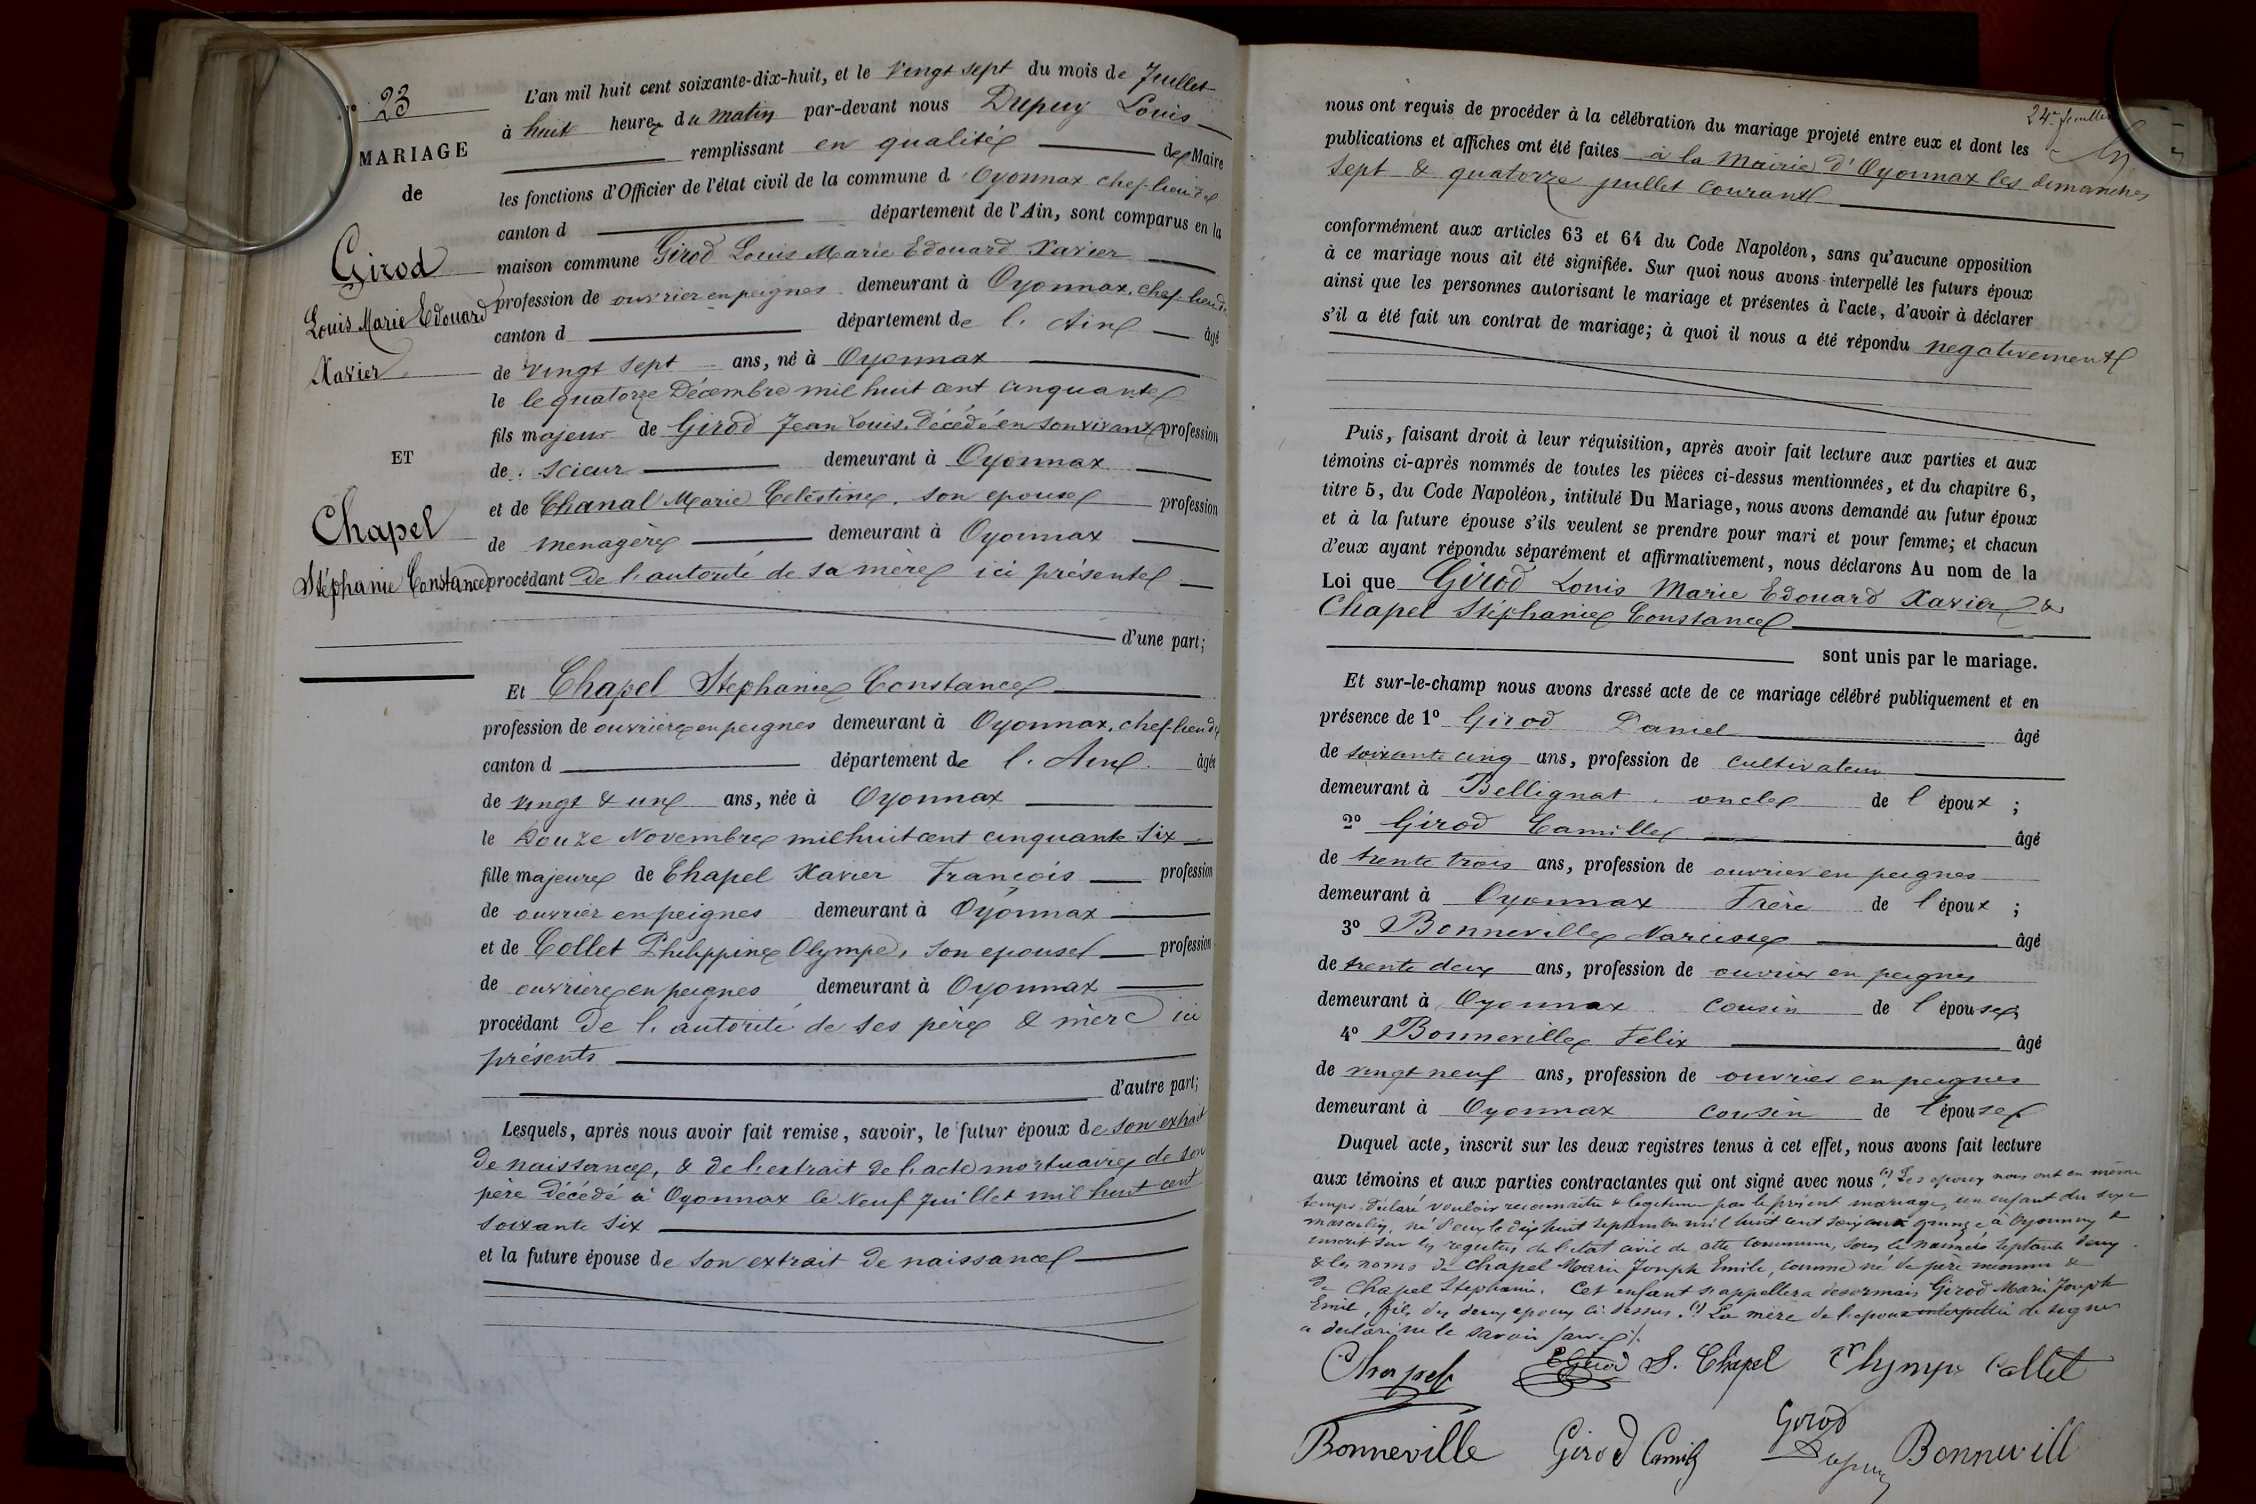 N° 23
MARIAGE
de
Girod
Louis Marie Edouard
Xavier
ET
Chapel
Stéphanie Constance
L'an mil huit cent soixante-dix-huit, et le Vingt sept du mois de Juillet
à huit heures du matin par-devant nous Dupuy Louis
remplissant en qualité de Maire
les fonctions d'Officier de l'état civil de la commune d'Oyonnax chef-lieu de
canton d département de l'Ain, sont comparus en la
maison commune Girod Louis Marie Edouard Xavier
profession de ouvrier en peignes demeurant à Oyonnax, chef-lieu de
canton d département de l'Ain âgé
de vingt sept ans, né à Oyonnax
le le quatorze Décembre mil huit cent cinquante
fils majeur de Girod Jean Louis, décédé en son vivant profession
de scieur demeurant à Oyonnax
et de Chanal Marie Celéstine, son epouse profession
de menagère demeurant à Oyonnax
procédant de l'autorité de sa mère ici présente
d'une part;
Et Chapel Stephanie Constance
profession de ouvrière en peignes demeurant à Oyonnax, chef-lieu de
canton d département de l'Ain âgée
de vingt & un ans, née à Oyonnax
le Douze Novembre mil huit cent cinquante six
fille majeure de Chapel Xavier François profession
de ouvrier en peignes demeurant à Oyonnax
et de Collet Philippine Olympe, son epouse profession
de ouvrière en peignes demeurant à Oyonnax
procédant de l'autorité de ses père & mère ici
présents
d'autre part;
Lesquels, après nous avoir fait remise, savoir, le futur époux de son extrait
de naissance, & de l'extrait de l'acte mortuaire de son
père décédé à Oyonnax le Neuf Juillet mil huit cent
soixante six
et la future épouse de son extrait de naissance
24e feuillet
nous ont requis de procéder à la célébration du mariage projeté entre eux et dont les
publications et affiches ont été faites à la Mairie d'Oyonnax les dimanches
sept & quatorze juillet courant
conformément aux articles 63 et 64 du Code Napoléon, sans qu'aucune opposition
à ce mariage nous ait été signifiée. Sur quoi nous avons interpellé les futurs époux
ainsi que les personnes autorisant le mariage et présentes à l'acte, d'avoir à déclarer
s'il a été fait un contrat de mariage; à quoi il nous a été répondu negativement
Puis, faisant droit à leur réquisition, après avoir fait lecture aux parties et aux
témoins ci-après nommés de toutes les pièces ci-dessus mentionnées, et du chapitre 6,
titre 5, du Code Napoléon, intitulé Du Mariage, nous avons demandé au futur époux
et à la future épouse s'ils veulent se prendre pour mari et pour femme; et chacun
d'eux ayant répondu séparément et affirmativement, nous déclarons Au nom de la
Loi que Girod Louis Marie Edouard Xavier &
Chapel Stéphanie Constance
sont unis par le mariage.
Et sur-le-champ nous avons dressé acte de ce mariage célébré publiquement et en
présence de 1° Girod Daniel âgé
de soixante cinq ans, profession de cultivateur
demeurant à Bellignat, oncle de l'époux ;
2° Girod Camille âgé
de trente trois ans, profession de ouvrier en peignes
demeurant à Oyonnax Frère de l'époux ;
3° Bonneville Narcisse âgé
de trente deux ans, profession de ouvrier en peignes
demeurant à Oyonnax cousin de l'épouse;
4° Bonneville Felix âgé
de vingt neuf ans, profession de ouvrier en peignes
demeurant à Oyonnax cousin de l'épouse
Duquel acte, inscrit sur les deux registres tenus à cet effet, nous avons fait lecture
aux témoins et aux parties contractantes qui ont signé avec nous (1). Les epoux nous ont en même
temps déclaré vouloir reconnaitre & legitimer par le présent mariage, un enfant du sexe
masculin, né d'eux le dix huit septembre mil huit cent soixante quinze à Oyonnax &
inscrit sur les registres de l'état civil de cette commune, sous le numéro septante deux
& les noms de Chapel Marie Joseph Emile, comme né de père inconnu &
de Chapel Stephanie. Cet enfant s'appellera desormais Girod Marie Joseph
Emile, fils des deux epoux ci-dessus. (1) La mère de l'epoux interpellée de signer
a declaré ne le savoir faire
Chapel EGirod S. Chapel Olympe Collet
Bonneville Girod Camille Girod Dupuy Bonnevill